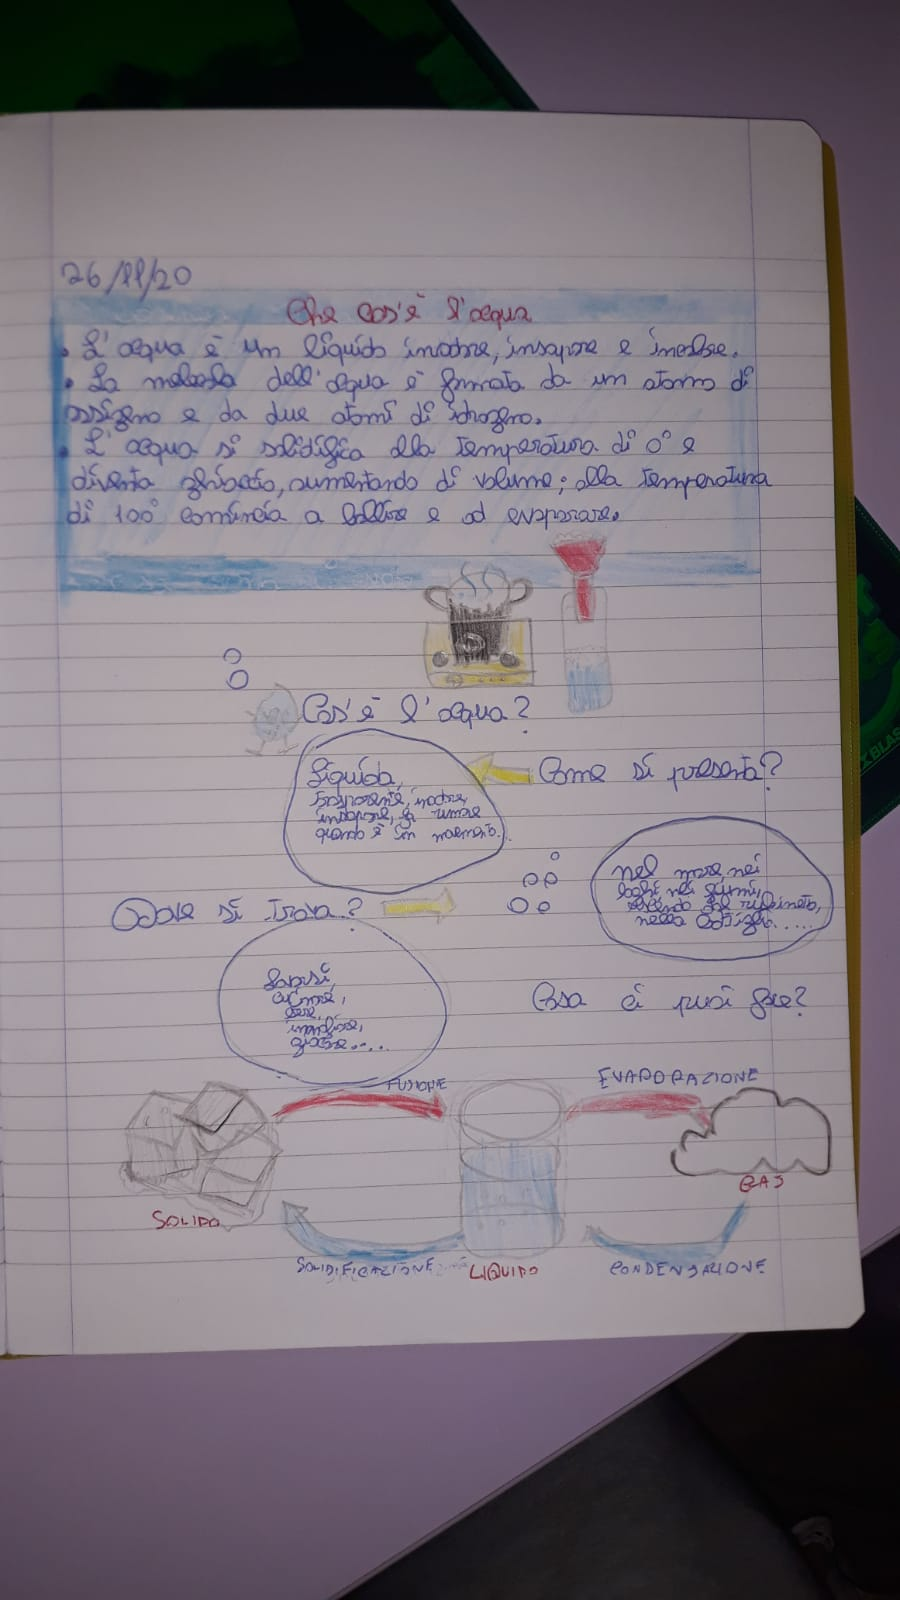 26/11/20
Che cos'è l'acqua
• L'acqua è un liquido inodore, insapore e incolore.
• La molecola dell'acqua è formata da un atomo di
ossigeno e da due atomi di idrogeno.
• L'acqua si solidifica alla temperatura di 0° e
diventa ghiaccio, aumentando di volume; alla temperatura
di 100° comincia a bollire e ad evaporare.
Cos'è l'acqua?
Liquida,
trasparente, inodore,
insapore, fa rumore
quando è in movimento.
Come si presenta?
Dove si trova?
nel mare, nei
laghi, nei fiumi,
dal rubinetto,
nella bottiglia.....
lavarsi,
bere,
innaffiare,
giocare....
Cosa ci puoi fare?
FUSIONE
EVAPORAZIONE
SOLIDO
GAS
SOLIDIFICAZIONE
LIQUIDO
CONDENSAZIONE